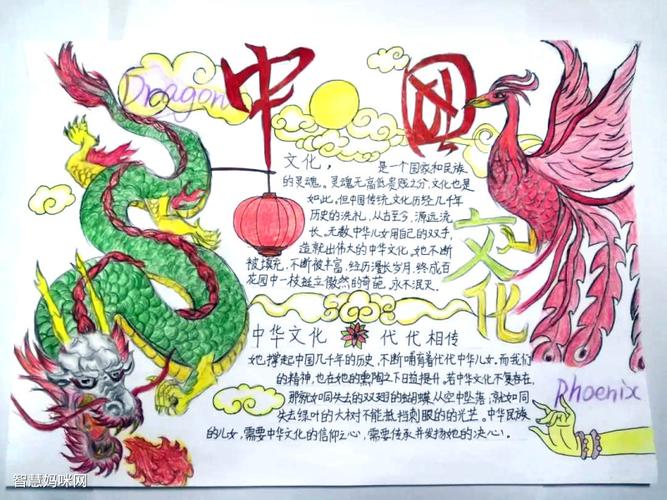 Dragon
中国
文化
文化,是一个国家和民族
的灵魂。灵魂无高低贵贱之分,文化也是
如此,但中国传统文化历经几千年
历史的洗礼,从古至今,源远流
长。无数中华儿女用自己的双手,
造就出伟大的中华文化。她不断
被填充,不断被丰富,经历漫长岁月,终成百
花园中一枝挺立傲然的奇葩,永不泯灭.
中华文化 代代相传
她,撑起中国几千年的历史,不断哺育着代代中华儿女.而我们
的精神,也在她的熏陶之下日益提升。若中华文化不复存在,
那就如同失去的双翅的蝴蝶从空中坠落;就如同
失去绿叶的大树不能抵挡刺眼的的光芒。中华民族
的儿女,需要中华文化的信仰之心,需要传承并发扬她的决心!.
Phoenix
智慧妈咪网